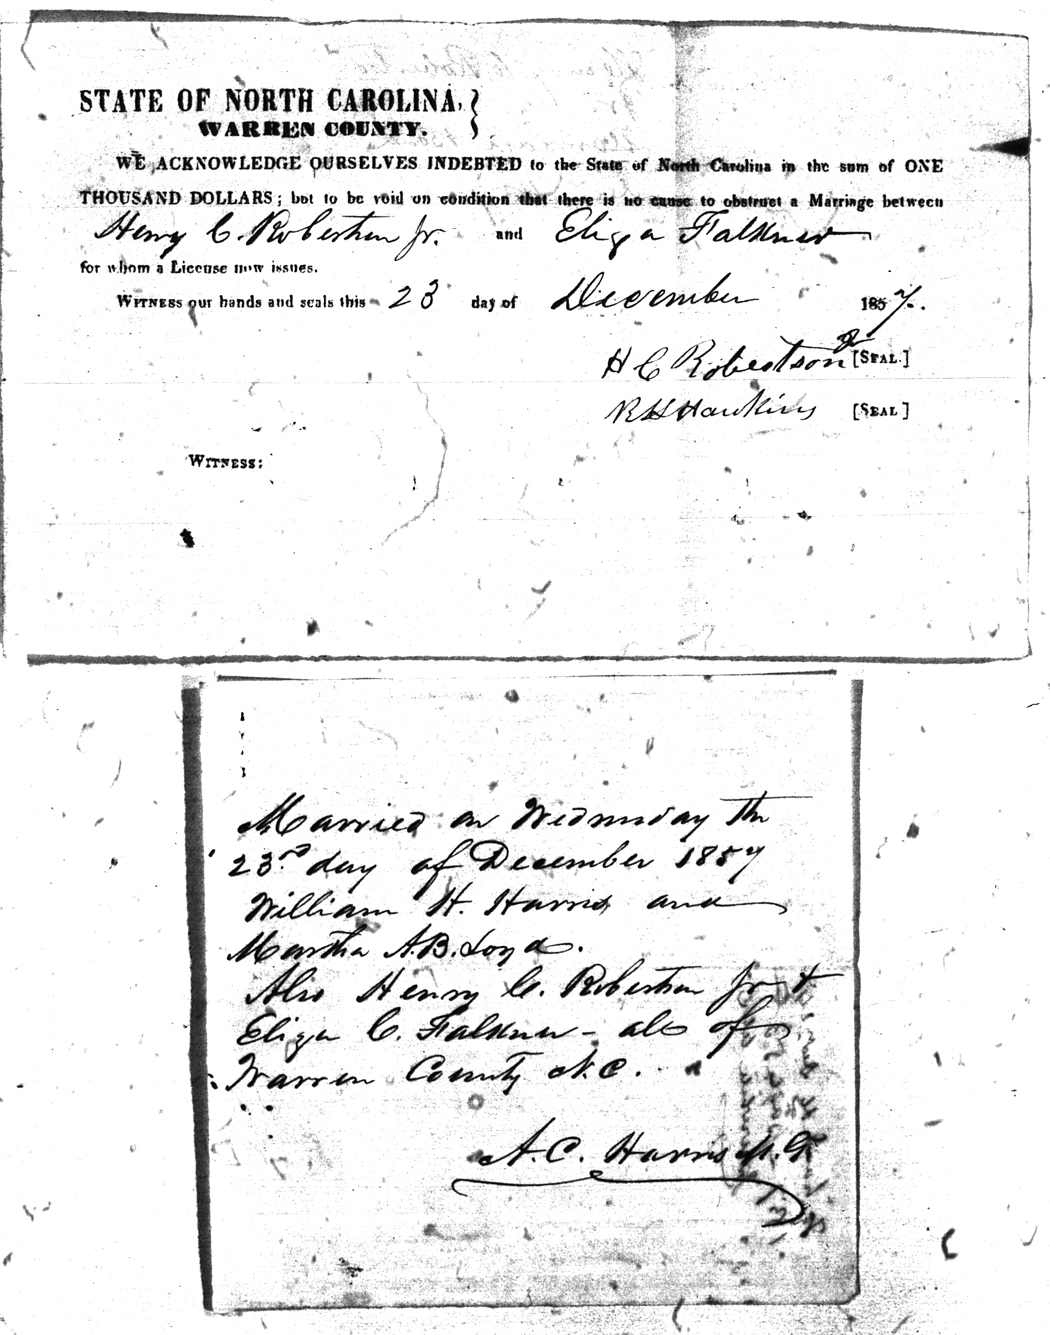 STATE OF NORTH CAROLINA,
WARREN COUNTY.
WE ACKNOWLEDGE OURSELVES INDEBTED to the State of North Carolina in the sum of ONE
THOUSAND DOLLARS; but to be void on condition that there is no cause to obstruct a Marriage between
Henry C. Robertson Jr. and Eliza Falkner
for whom a License now issues.
WITNESS our hands and seals this 23 day of December 1857.
H C Robertson Jr [SEAL.]
R H Hawkins [SEAL]
WITNESS:
Married on Wednesday the
23rd day of December 1857
William H. Harris and
Martha A.B. Loyd.
Also Henry C. Robertson Jr +
Eliza C. Falkner - all of
Warren County N.C.
A.C. Harris M.G